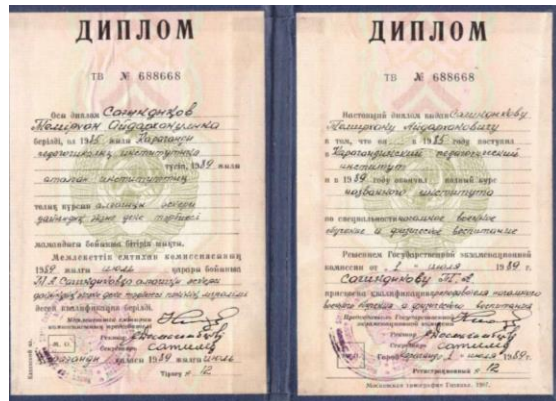 ДИПЛОМ
ТВ № 688668
Осы диплом Сагиндиков
Темирхан Айдархановичке
берілді, ол 1985 жылы Караганды
педагогикалық институтына
түсіп, 1989 жылы
аталған институттың
толық курсын алғашқы әскери
және дене тәрбиесі
мамандығы бойынша бітіріп шықты.
Мемлекеттік емтихан комиссиясының
1989 жылғы июль қарары бойынша
Т.А. Сагиндиковқа алғашқы әскери
квалификация берілді.
Мемлекеттік емтихан
комиссиясының председателі
Ректор
Секретарь
М. О.
Караганды қаласы 1989 жылғы июль
Тіркеу № 12
ДИПЛОМ
ТВ № 688668
Настоящий диплом выдан Сагиндикову
Темирхану Айдархановичу
в том, что он в 1985 году поступил
в Карагандинский педагогический
институт
и в 1989 году окончил полный курс
названного института
по специальности начальное военное
обучение и физическое воспитание
Решением Государственной экзаменационной
комиссии от 1 июля 1989 г.
Сагиндикову Т. А.
присвоена квалификация преподавателя начального
военного обучения и физического воспитания
Председатель Государственной
экзаменационной комиссии
Ректор
Секретарь
Город Караганда 1 июля 1989 г.
Регистрационный № 12
Московская типография Гознака. 1987.